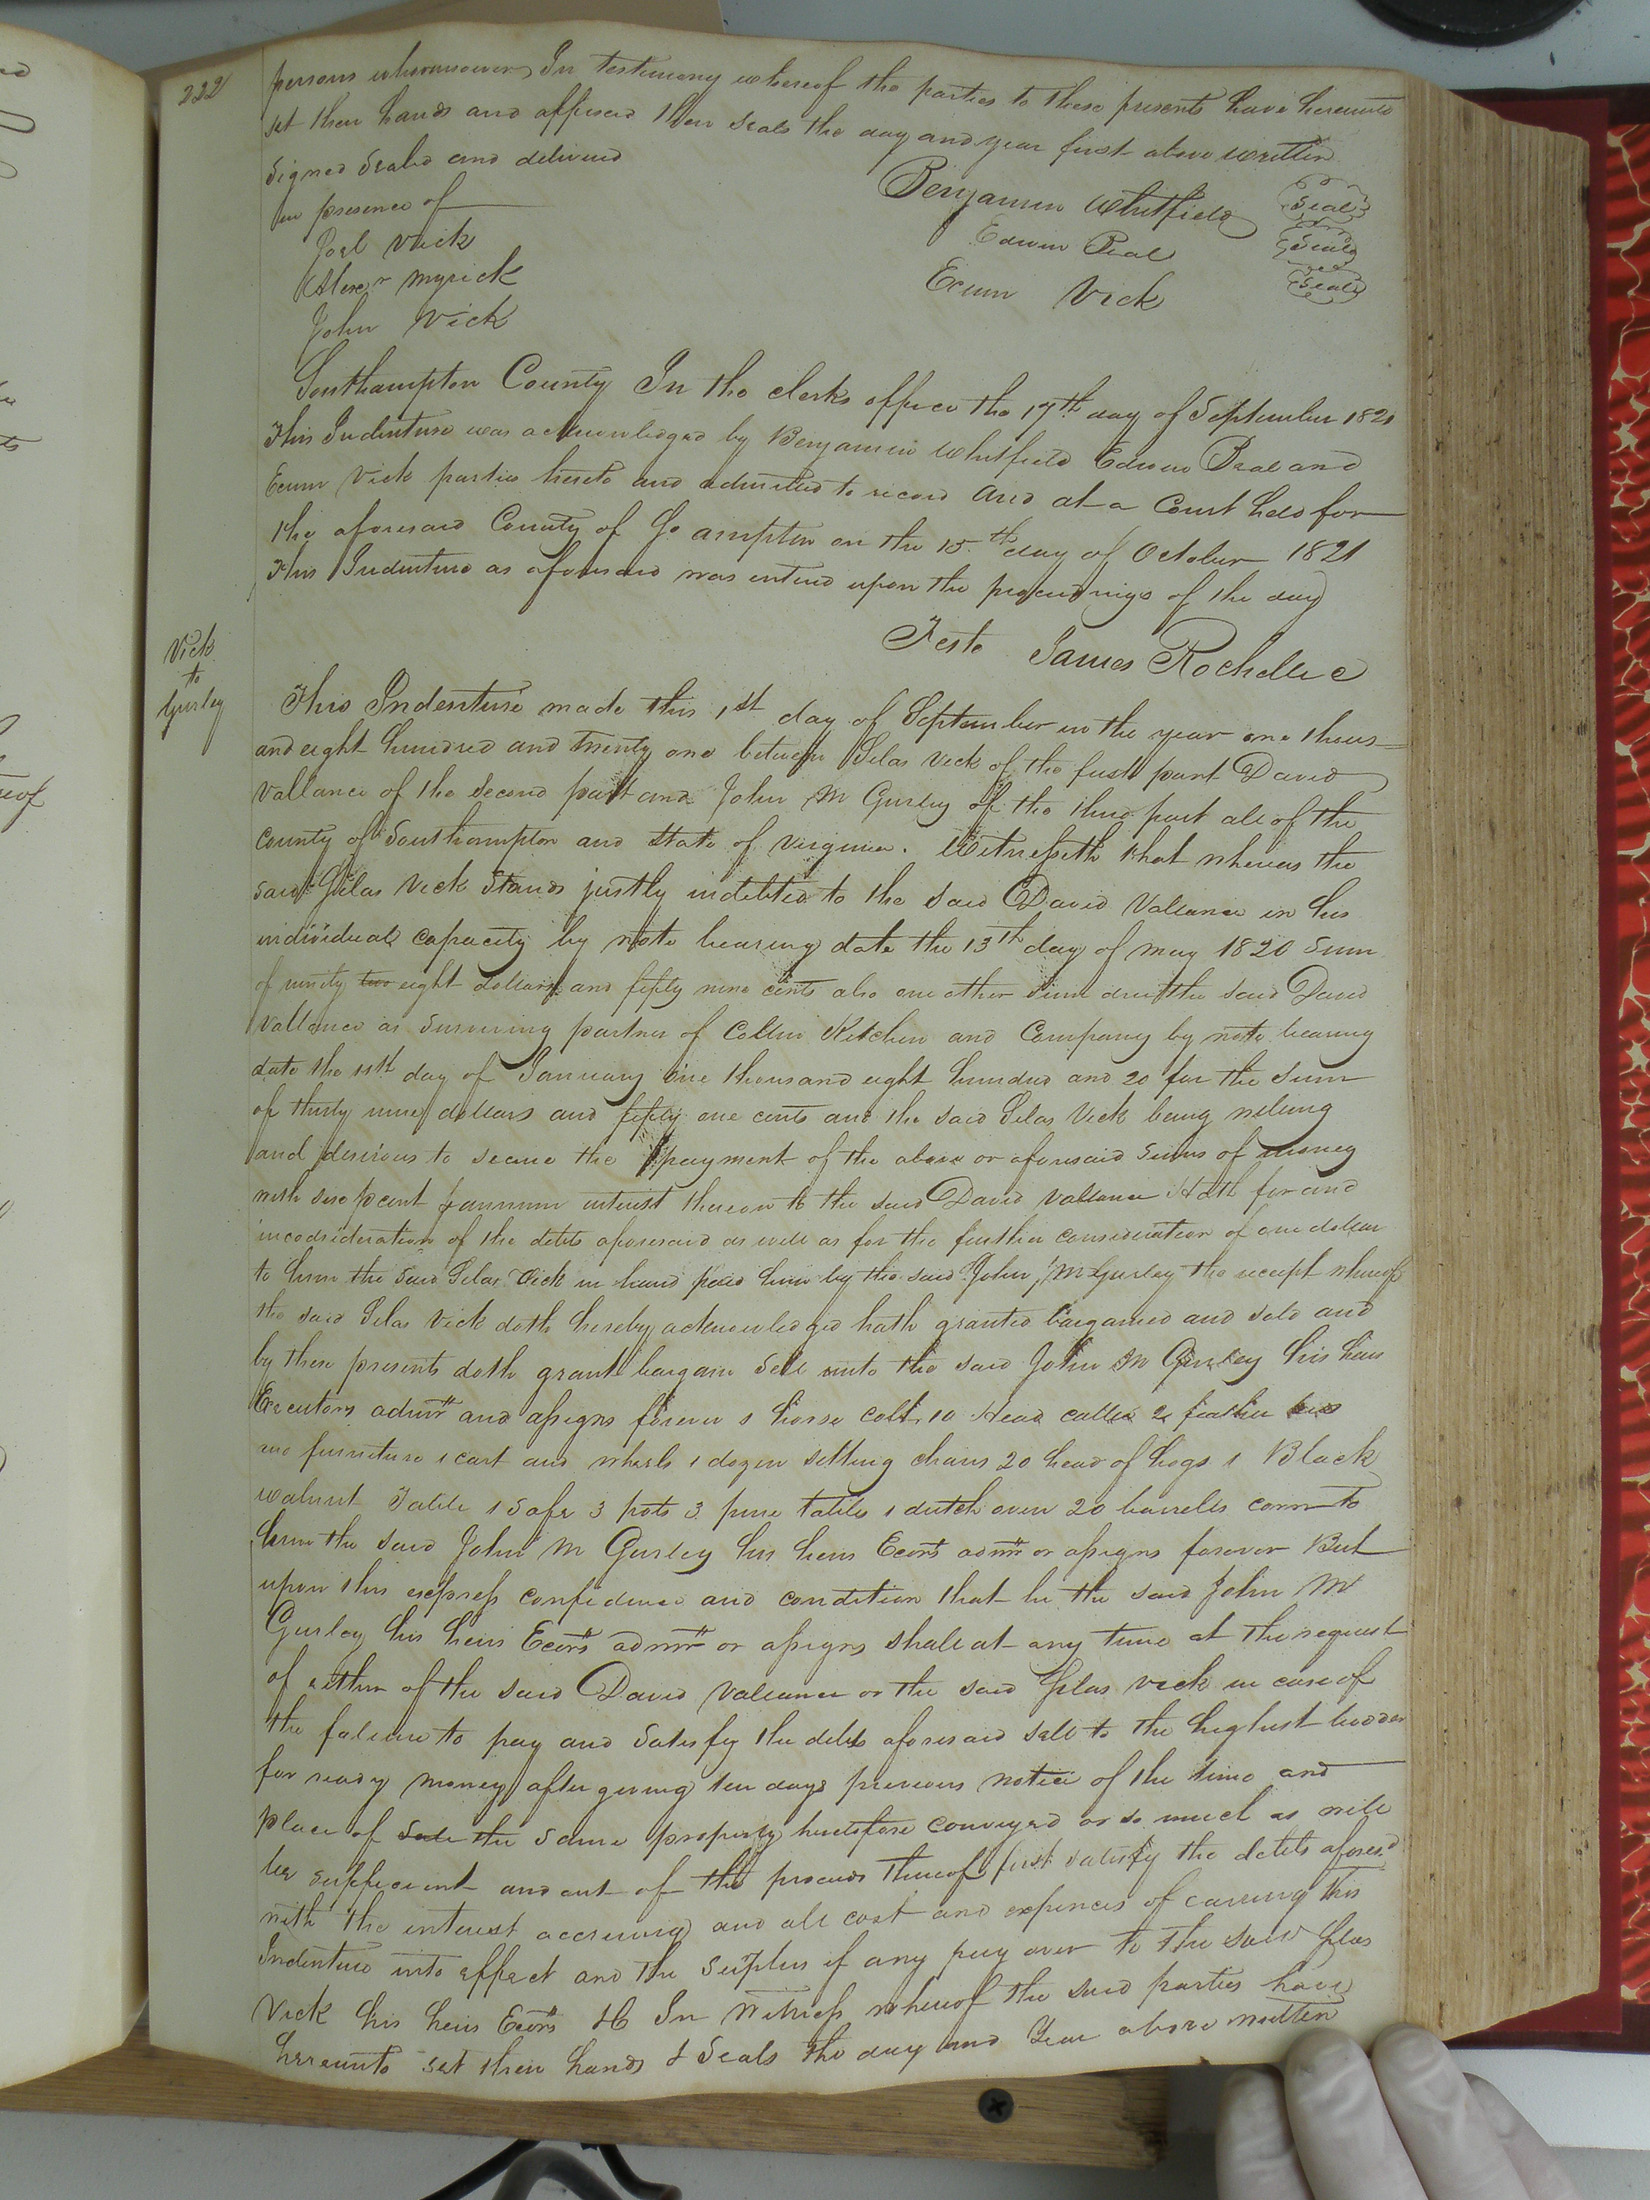 222
persons whomsoever In testimony whereof the parties to these presents have hereunto
set their hands and affixed their seals the day and year first above written
Signed Sealed and delivered
in presence of
Joel Vick
Alexr Myrick
John Vick
Benjamin Whitfield Seal
Edwin Beal Seal
Exum Vick Seal
Southampton County In the clerks office the 17th day of September 1821
This Indenture was acknowledged by Benjamin Whitfield Edwin Beal and
Exum Vick parties hereto and admitted to record And at a Court held for
the aforesaid County of So ampton on the 15th day of October 1821
This Indenture as aforesaid was entered upon the proceedings of the day
Teste James Rochelle C
Vick
to
Gurley
This Indenture made this 1st day of September in the year one thous=
and eight hundred and twenty one between Silas Vick of the first part David
Vallance of the second part and John M Gurley of the third part all of the
County of Southampton and State of Virginia. Witnesseth that whereas the
said Silas Vick Stands justly indebted to the said David Vallance in his
individual capacity by note bearing date the 13th day of May 1820 Sum
of ninety two eight dollars and fifty nine cents also one other sum due the said David
Vallance as Surviving partner of Collin Kitchen and Company by note bearing
date the 11th day of January one thousand eight hundred and 20 for the Sum
of thirty nine dollars and fifty one cents and the said Silas Vick being willing
and desirous to secure the payment of the above or aforesaid Sums of money
with six pcent pannum interest thereon to the said David Vallance Hath for and
inconsideration of the debts aforesaid as well as for the further consideration of one dollar
to him the Said Silas Vick in hand paid him by the said John M Gurley the receipt whereof
the said Silas Vick doth hereby acknowledged hath granted bargained and sold and
by these presents doth grant bargain Sell unto the said John M Gurley his heirs
Executors admrs and assigns forever 1 horse colt 10 Head cattle 2 feather beds
and furniture 1 cart and wheels 1 dozen setting chairs 20 head of hogs 1 Black
walnut Table 1 Safe 3 pots 3 pine tables 1 dutch oven 20 barrells corn to
him the said John M Gurley his heirs Exors admrs or assigns forever But
upon this express confidence and condition that he the said John M
Gurley his heirs Exors admrs or assigns shall at any time at the request
of either of the said David Vallance or the said Silas Vick in case of
the falure to pay and Satisfy the debts aforesaid sell to the highest bidder
for ready money after giving ten days previous notice of the time and
place of sale the same property heretofore conveyed or so much as will
be sufficient and out of the proceeds thereof first satisfy the debts aforesd
with the interest accruing and all cost and expences of carring this
Indenture into effect and the surplus if any pay over to the said Silas
Vick his heirs Exors &c In Witness whereof the said parties have
hereunto set their hands & Seals the day and Year above written